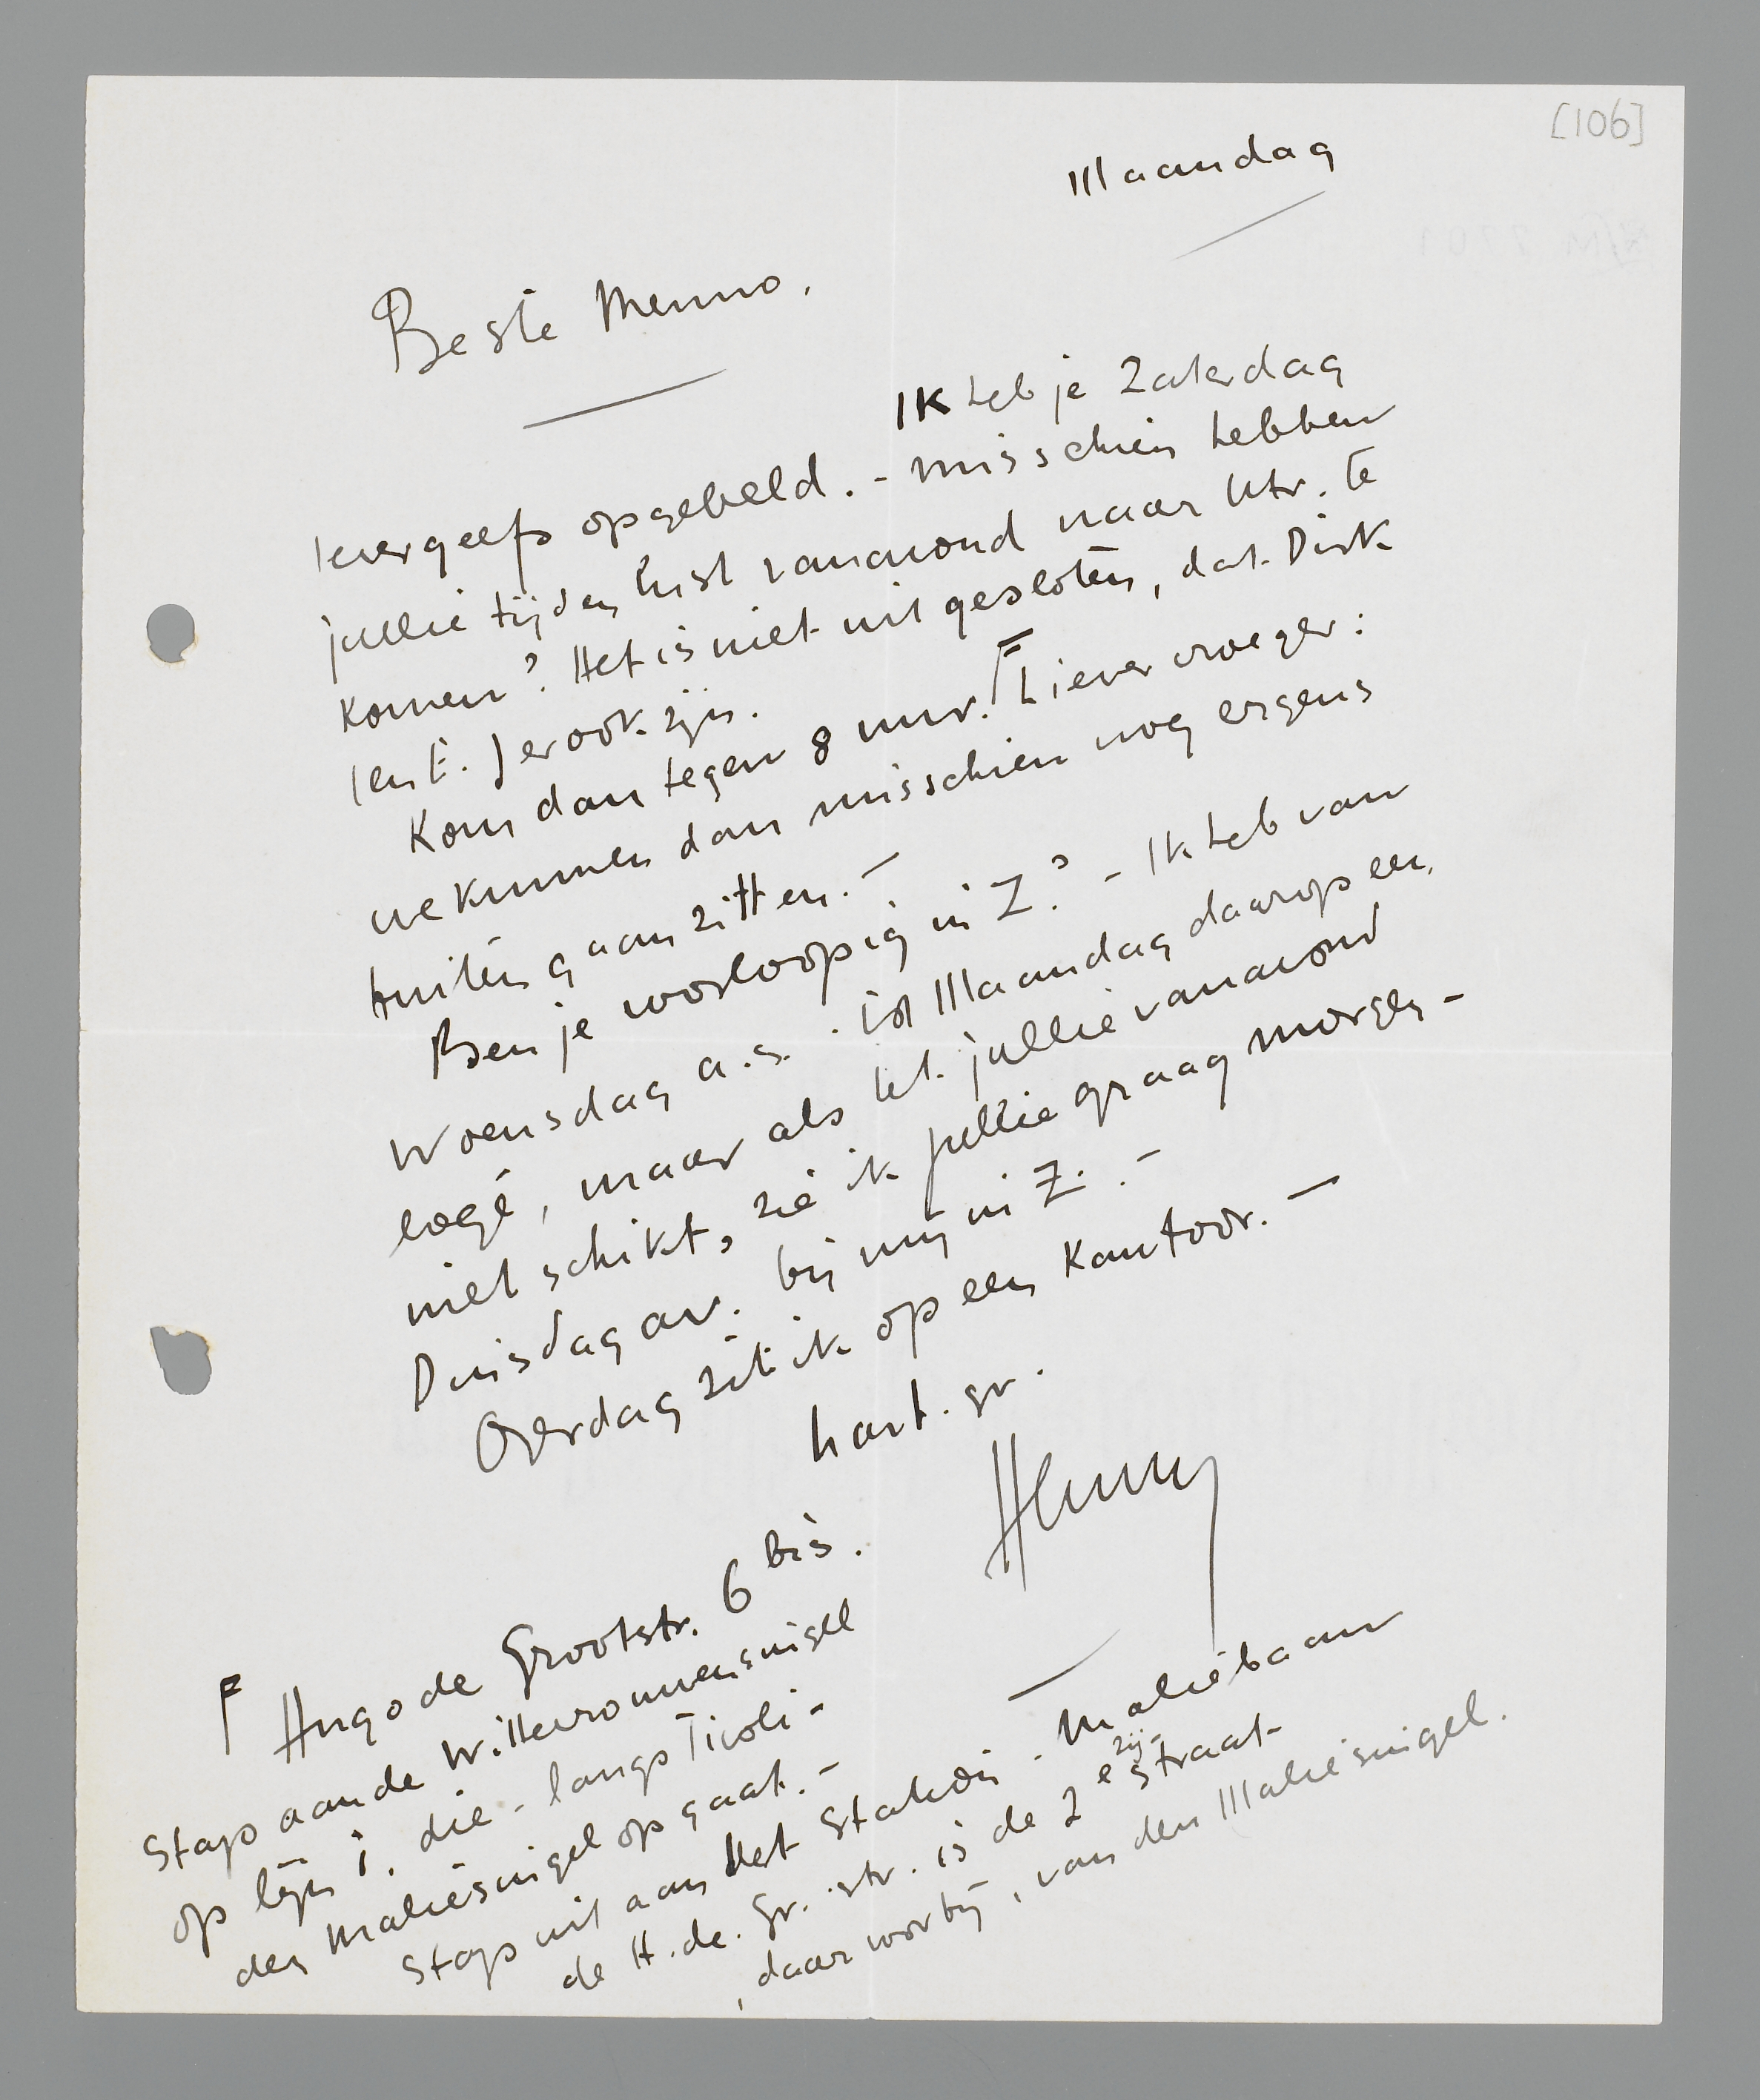 [106]
Maandag
Beste Menno.
Ik heb je Zaterdag
tevergeefs opgebeld. - Misschien hebben
jullie tijd en lust vanavond naar Utr. te
komen? Het is niet uitgesloten, dat Dirk
(en E.) er ook zijn.
Kom dan tegen 8 uur. Γ Liever vroeger:
we kunnen dan misschien nog ergens
buiten gaan zitten. -
Ben je voorloopig in Z? - Ik heb van
Woensdag a.s. tot Maandag daarop een
logé, maar als het jullie vanavond
niet schikt, zie ik jullie graag morgen -
Dinsdagav. bij mij in Z. -
Overdag zit ik op een kantoor. -
hart. gr.
Henny
Γ Hugo de Grootstr. 6 bis.
Stap aan de Wittevrouwensingel
op lijn 1, die - langs Tivoli -
den Maliesingel op gaat. -
Stap uit aan het Station - Maliebaan
de H. de. Gr. str. is de 2e zij-straat
, daar voorbij, van den Maliesingel.